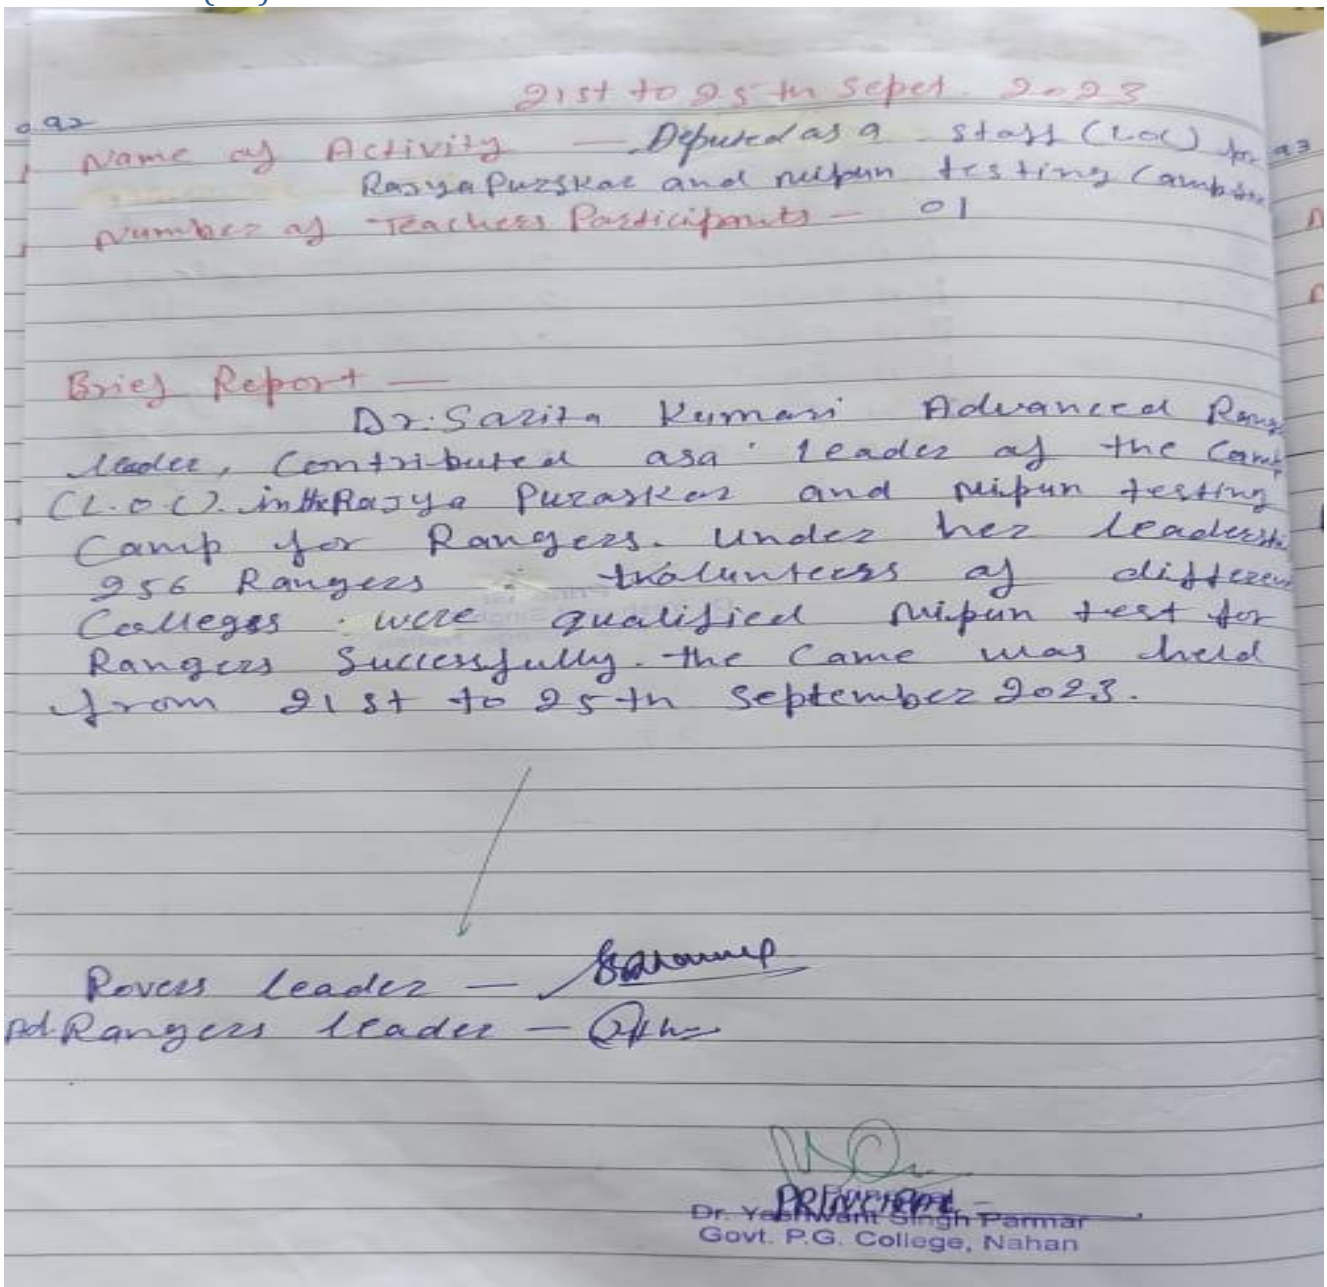 21st to 25th Sepet. 2023
Name of Activity — Deputed as a staff (LOC) for
Rajya Purskar and nipun testing Camp
Number of Teachers Participants - 01
Brief Report —
Dr. Sarita Kumari Advanced Range
leader, Contributed as a leader of the Camp
(L.O.C). in the Rajya Puraskar and Nipun testing
Camp for Rangers. Under her leadershi
256 Rangers volunteers of differen
Colleges were qualified Nipun test for
Rangers Successfully. the Came was held
from 21st to 25th September 2023.
Rovers leader —
Ad. Rangers leader —
PRINCIPAL
Dr. Yashwant Singh Parmar
Govt. P.G. College, Nahan